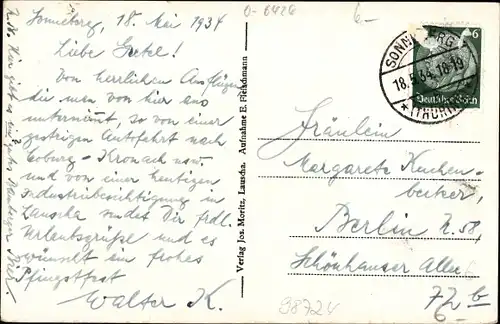 Sonneberg, 18. Mai 1934
Liebe Gretel!
Von herrlichen Ausflügen,
die man von hier aus
unternimmt, so von einer
gestrigen Autofahrt nach
Coburg - Kronach usw.
und von einer heutigen
Industriebesichtigung in
Lauscha sendet Dir frdl.
Urlaubsgrüße und es
wünscht ein frohes
Pfingstfest
Walter K.
Hier gibt es ein gutes Bamberger Bier!
Verlag Jos. Moritz, Lauscha. Aufnahme E. Fleischmann
0-6426
6-
SONNEBERG
18.5.34.18-19
*(THÜRIN
6
Deutsches Reich
Fräulein
Margarete Kuchen-
becker,
Berlin N.58,
Schönhauser Allee
72 b
98724